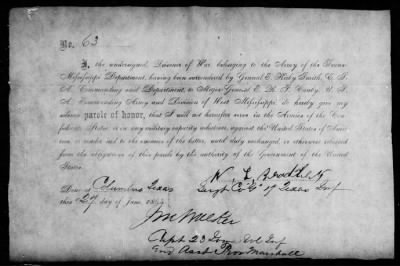 No. 63
I, the undersigned, Prisoner of War, belonging to the Army of the Trans-
Mississippi Department, having been surrendered by General E. Kirby Smith, C. S.
A., Commanding said Department, to Major General E. R. S. Canby, U. S.
A., Commanding Army and Division of West Mississippi, do hereby give my
solemn parole of honor, that I will not hereafter serve in the Armies of the Con-
federate States, or in any military capacity whatever, against the United States of Ame-
rica, or render aid to the enemies of the latter, until duly exchanged, or otherwise released
from the obligations of this parole by the authority of the Government of the United
States.
N. L.
Done at Columbus Texas Sergt Co "G" 17 Texas Inf
this 27 of June 1865
Jno Walker
Capt 23 Iowa Vol Inf
and Asst Pro Marshall